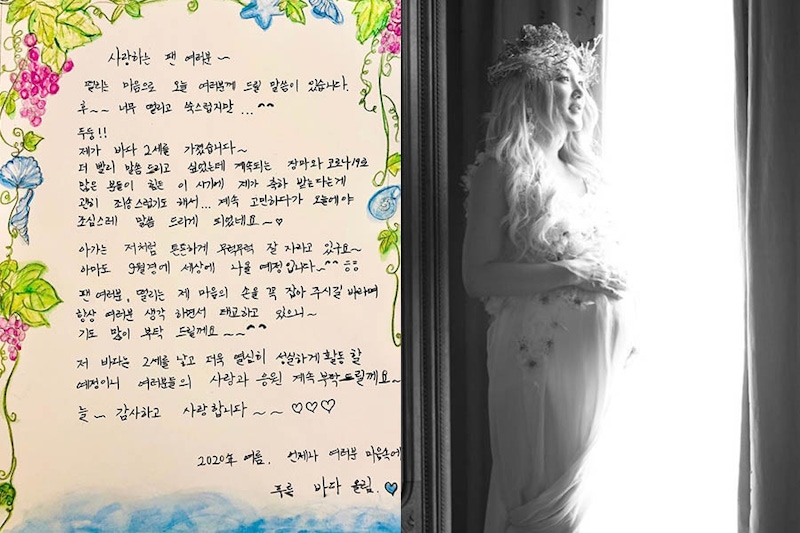 사랑하는 팬 여러분 ~
떨리는 마음으로 오늘 여러분께 드릴 말씀이 있습니다.
후~~ 너무 떨리고 쑥스럽지만 ...^^
두둥!!
제가 바다 2세를 가졌습니다~
더 빨리 말씀드리고 싶었는데 계속되는 장마와 코로나19로
많은 분들이 힘든 이 시기에 제가 축하 받는다는게
괜히 죄송스럽기도 해서... 계속 고민하다가 오늘에야
조심스레 말씀 드리게 되었네요~♡
아가는 저처럼 튼튼하게 무럭무럭 잘 자라고 있구요~
아마도 9월경에 세상에 나올 예정입니다~^^
팬 여러분, 떨리는 제 마음의 손을 꼭 잡아 주시길 바라며
항상 여러분 생각 하면서 태교하고 있으니~
기도 많이 부탁 드릴께요~~^^
저 바다는 2세를 낳고 더욱 열심히 성실하게 활동 할
예정이니 여러분들의 사랑과 응원 계속 부탁드릴께요~
늘 ~ 감사하고 사랑합니다~~ ♡♡♡
2020年 여름. 언제나 여러분 마음속에
푸를 바다 올림.♥